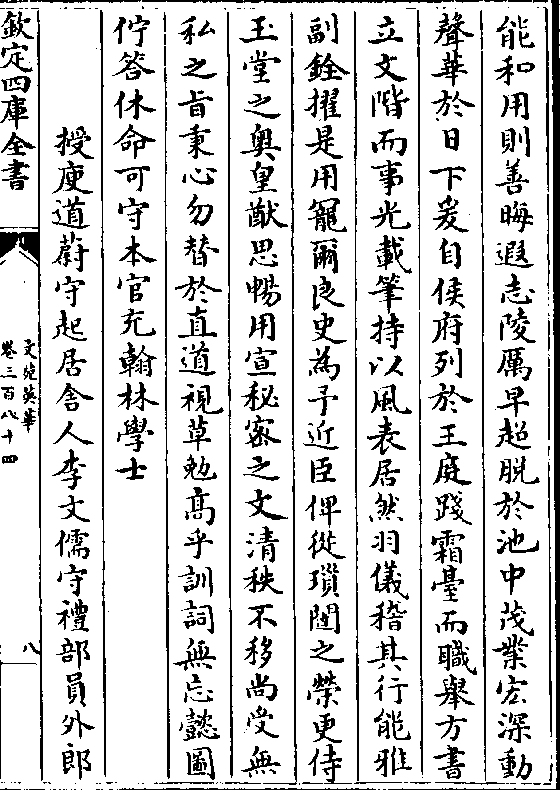 能和用則善晦遐志陵厲早超脱於池中茂業宏深動
聲華於日下爰自侯府列於王庭踐霜臺而職舉方書
立文階而事光載筆持以風表居然羽儀稽其行能雅
副銓擢是用寵爾良史為予近臣俾從瑣闥之榮更侍
玉堂之奥皇猷思暢用宣秘宻之文清秩不移尚受無
私之旨秉心勿替於直道視草勉髙乎訓詞無忘懿圖
佇答休命可守本官充翰林學士
授庾道蔚守起居舍人李文儒守禮部員外郎
欽定四庫全書
文苑英華
卷三百八十四
八